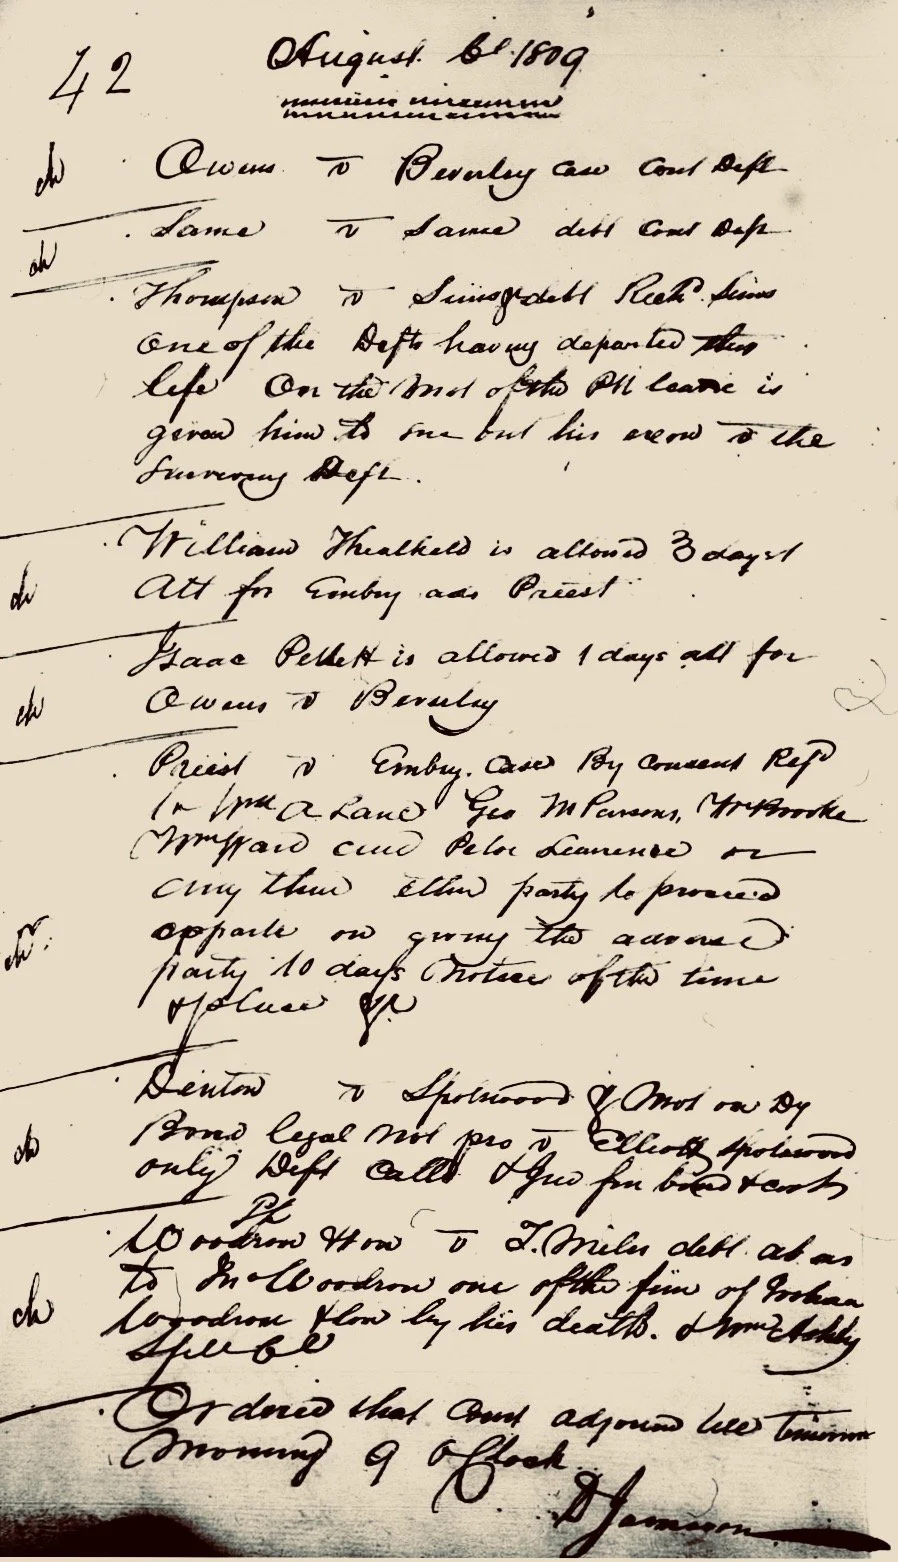 42
August Ct. 1809
ch Owens v Beverley Case Cont Deft
ch Same v Same debt Cont Deft
Thompson v Sims & debt Sims
one of the Defts having departed this
life On the mot of the Plt leave is
given him to sue out his v the
surviving Deft.
William Threlkeld is allowed 3 days
ch Att for Embry ads Priest
Isaac Pellett is allowed 1 days att for
ch Owens v Beverley
Priest v Embry. Case By Consent Refd
to Wm A Lane Geo M Parsons, Wm Brooke
Wm Ward and Peter Lawrence or
any three either party to proceed
ch exparte on giving the adverse
party 10 days Notice of the time
& place &c
Denton v Spotswood & Mot on Dy
ch Bond legal Not pro v Elliott Spotswood
only Deft Calld & Jud for bond & costs
Woodrow v T. Miles debt ab as
to Woodrow one of the firm of
ch Woodrow & Son by his death. & Wm Ashby
Spll Bl
Ordered that Court adjourned till Tomorrow
Morning 9 O Clock
D Jameson